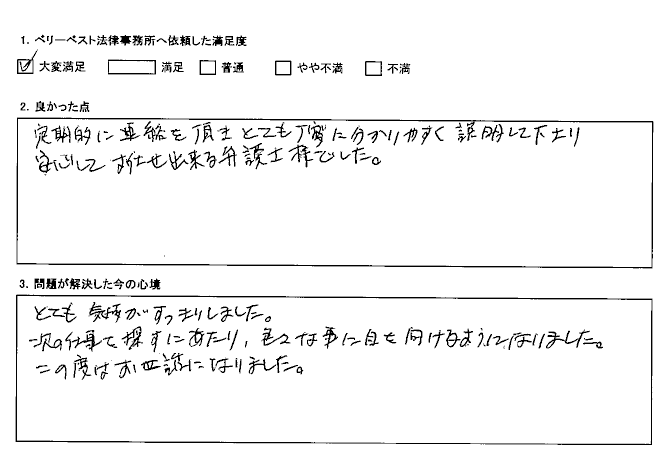 1. ベリーベスト法律事務所へ依頼した満足度
大変満足 満足 普通 やや不満 不満
2. 良かった点
定期的に連絡を頂きとても丁寧に分かりやすく説明して下さり
安心してお任せ出来る弁護士様でした。
3. 問題が解決した今の心境
とても気持がすっきりしました。
次の仕事を探すにあたり、色々な事に目を向けるようになりました。
この度はお世話になりました。